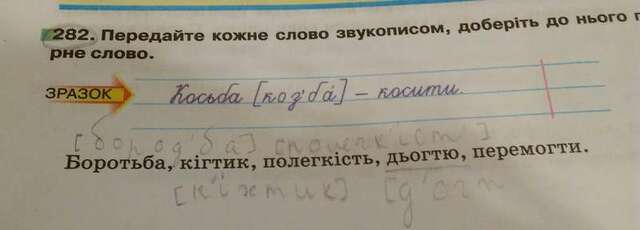 282. Передайте кожне слово звукописом, доберіть до нього п
рне слово.
ЗРАЗОК Косьба [коз'ба́] – косити.
[бород'ба]
Боротьба, кігтик, полегкість, дьогтю, перемогти.
[к'іхтик] [д'огт